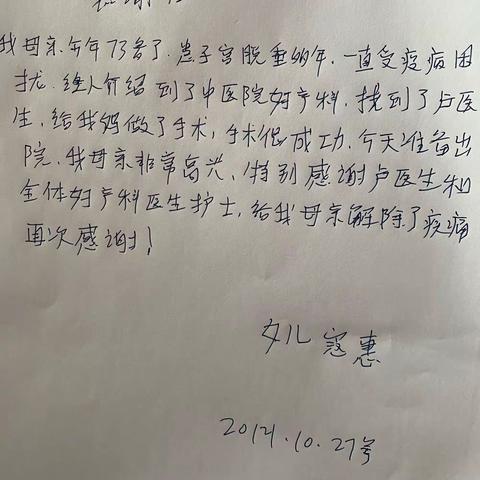 感谢信
我母亲今年73岁了.患子宫脱垂44年.一直受疫病困
扰.经人介绍到了中医院妇产科,找到了卢医
生,给我妈做了手术,手术很成功.今天准备出
院,我母亲非常高兴,特别感谢卢医生和
全体妇产科医生护士,给我母亲解除了疾痛
再次感谢!
女儿 寇惠
2021.10.27号